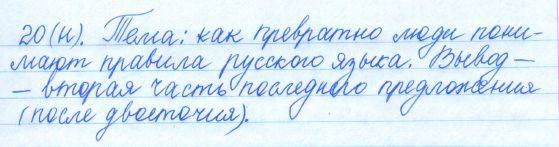 20(н). Тема: как превратно люди пони-
мают правила русского языка. Вывод –
– вторая часть последнего предложения
(после двоеточия).